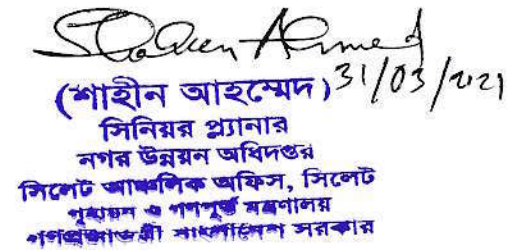 Shaheen Ahmed
31/03/2021
(শাহীন আহম্মেদ)
সিনিয়র প্ল্যানার
নগর উন্নয়ন অধিদপ্তর
সিলেট আঞ্চলিক অফিস, সিলেট
গৃহায়ন ও গণপূর্ত মন্ত্রণালয়
গণপ্রজাতন্ত্রী বাংলাদেশ সরকার